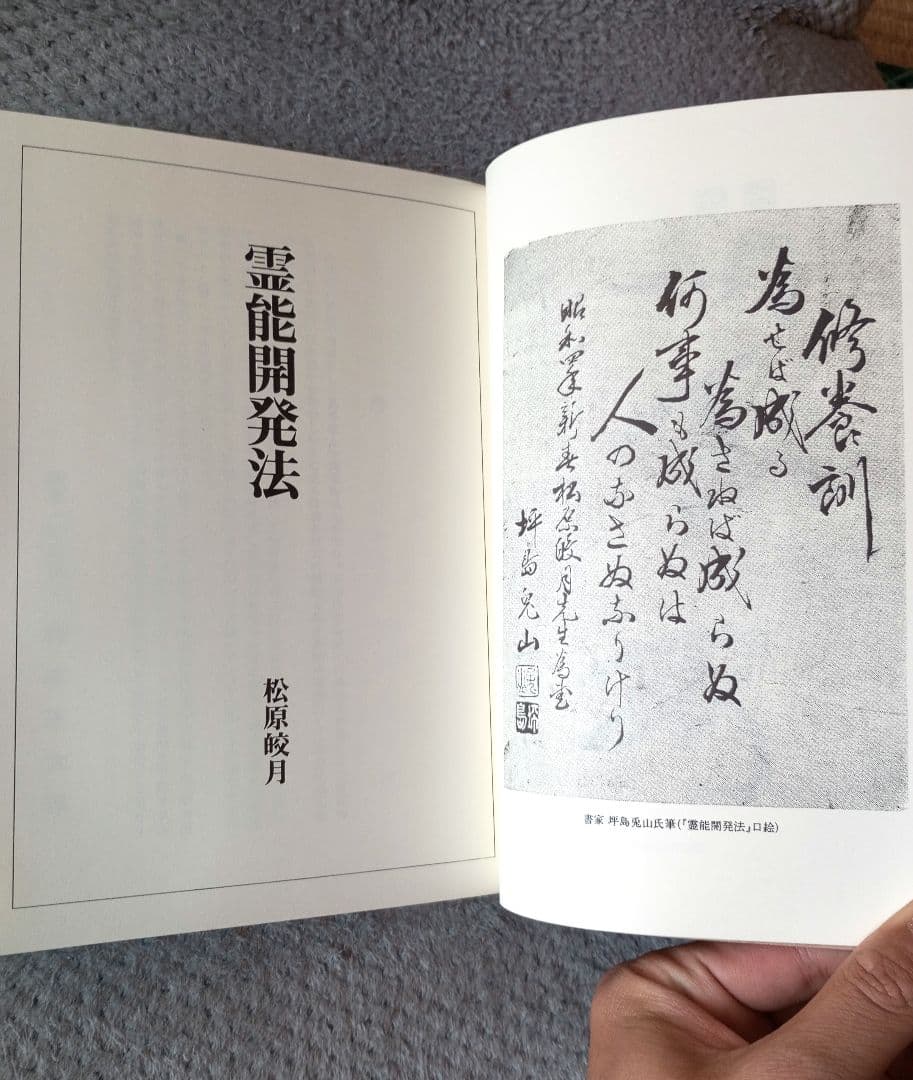 修養訓
為せば成る
為さねば成らぬ
何事も成らぬは
人のなさぬなりけり
昭和四年新春松原皎月先生為書
坪島兎山
書家 坪島兎山氏筆(『霊能開発法』口絵)
霊能開発法
松原皎月